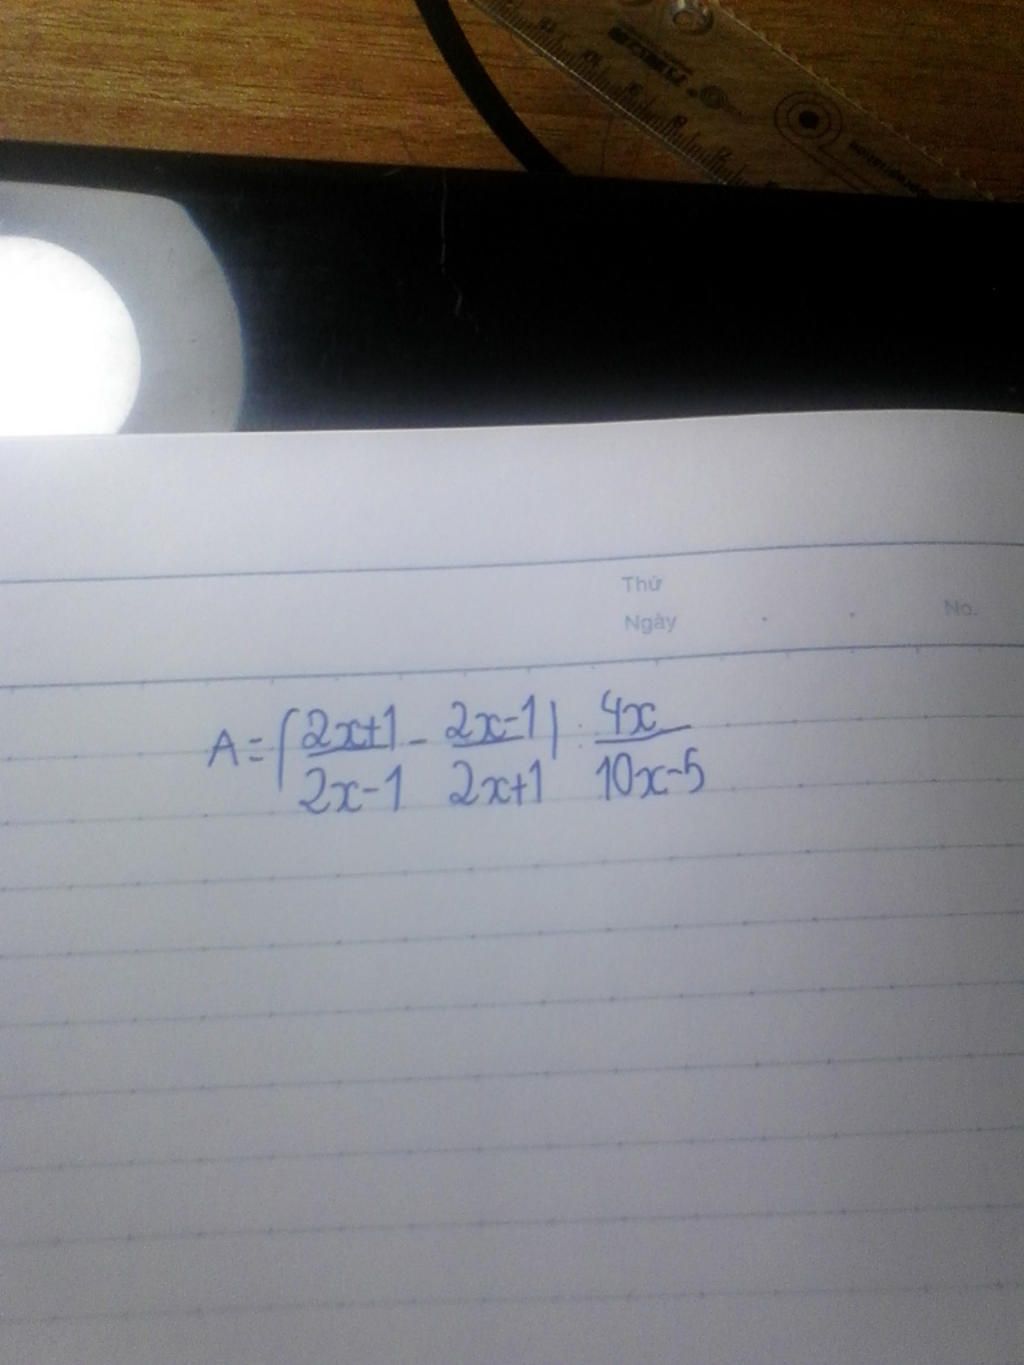 Thứ
Ngày . . No.
A = ( 2x+1 / 2x-1 - 2x-1 / 2x+1 ) : 4x / 10x-5